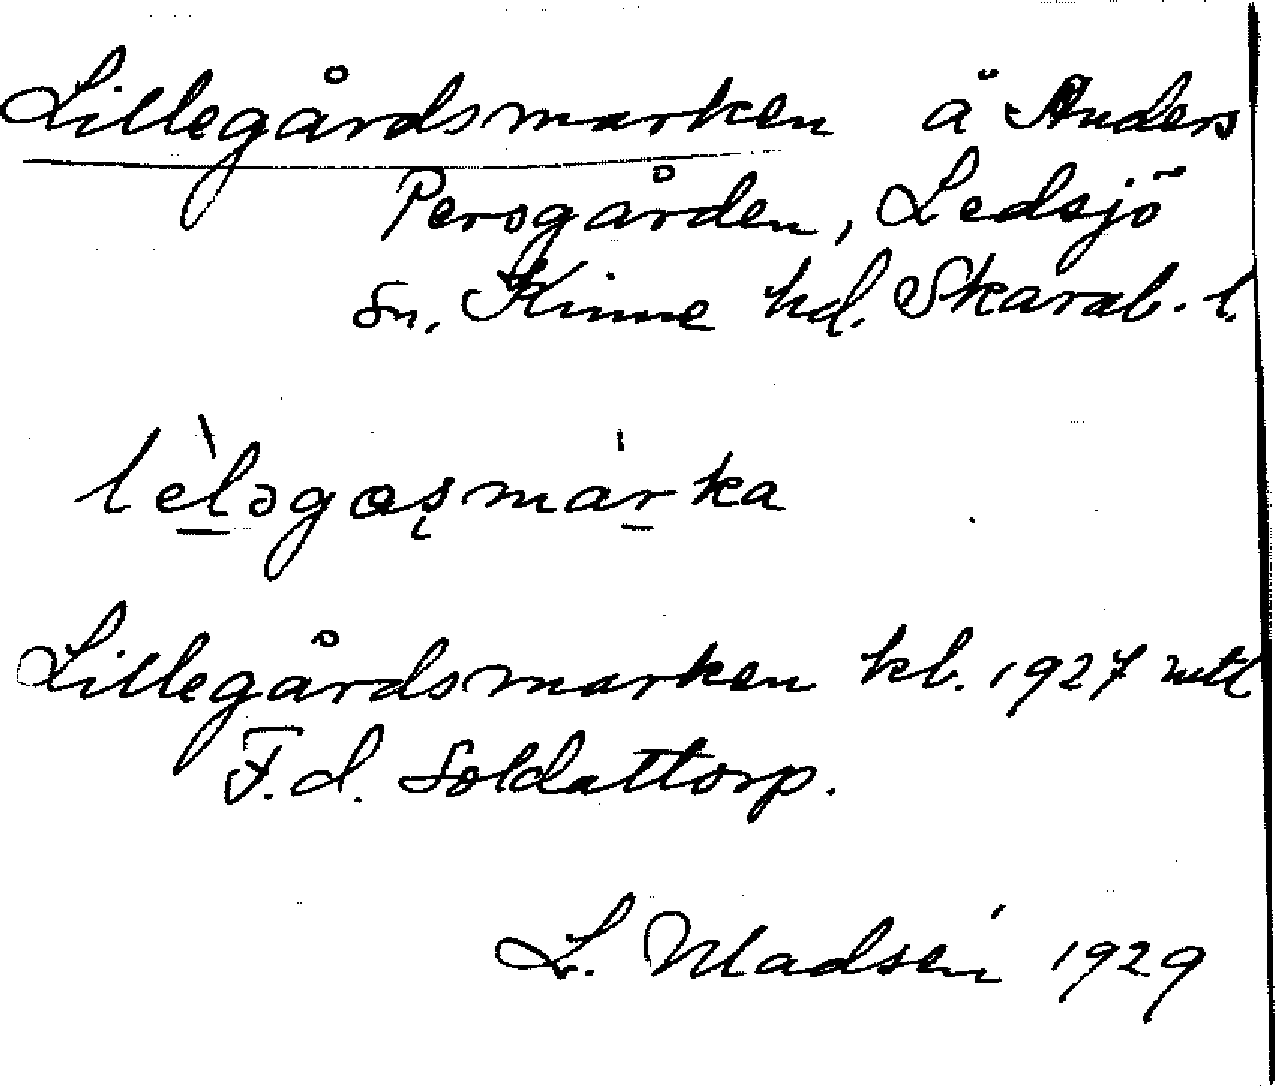 Lillegårdsmarken å Anders
Persgården, Ledsjö
sn. Kinne hd. Skarab. l.
lèləgaşmárka
Lillegårdsmarken kl. 1927
F.d. Soldattorp.
L. Madsén 1929